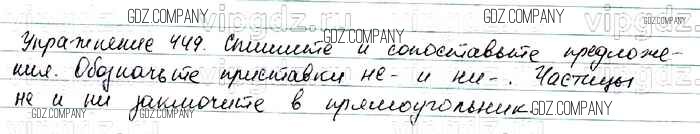 GDZ.COMPANY GDZ.COMPANY
Упражнение 449. Спишите и сопоставьте предложе-
ния. Обозначьте приставки не- и ни-. Частицы
не и ни заключите в прямоугольник
GDZ.COMPANY GDZ.COMPANY GDZ.COMPANY